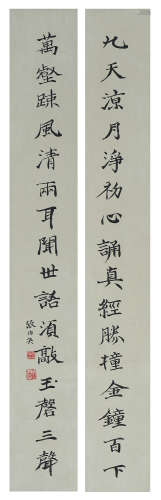 九天涼月淨初心誦真經勝撞金鐘百下
萬壑踈風清兩耳聞世語須敲玉磬三聲
張伯英